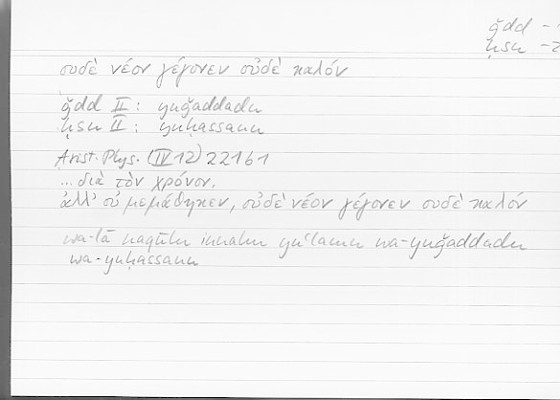 ǧdd -
ḥsn -2
οὐδὲ νέον γέγονεν οὐδὲ καλόν
ǧdd II : yuǧaddadu
ḥsn II : yuḥassanu
Arist. Phys. (IV 12) 221b1
... διὰ τὸν χρόνον,
ἀλλ' οὐ μεμάθηκεν, οὐδὲ νέον γέγονεν οὐδὲ καλόν
wa-lā naqūlu innahu yuʿlamu wa-yuǧaddadu
wa-yuḥassanu